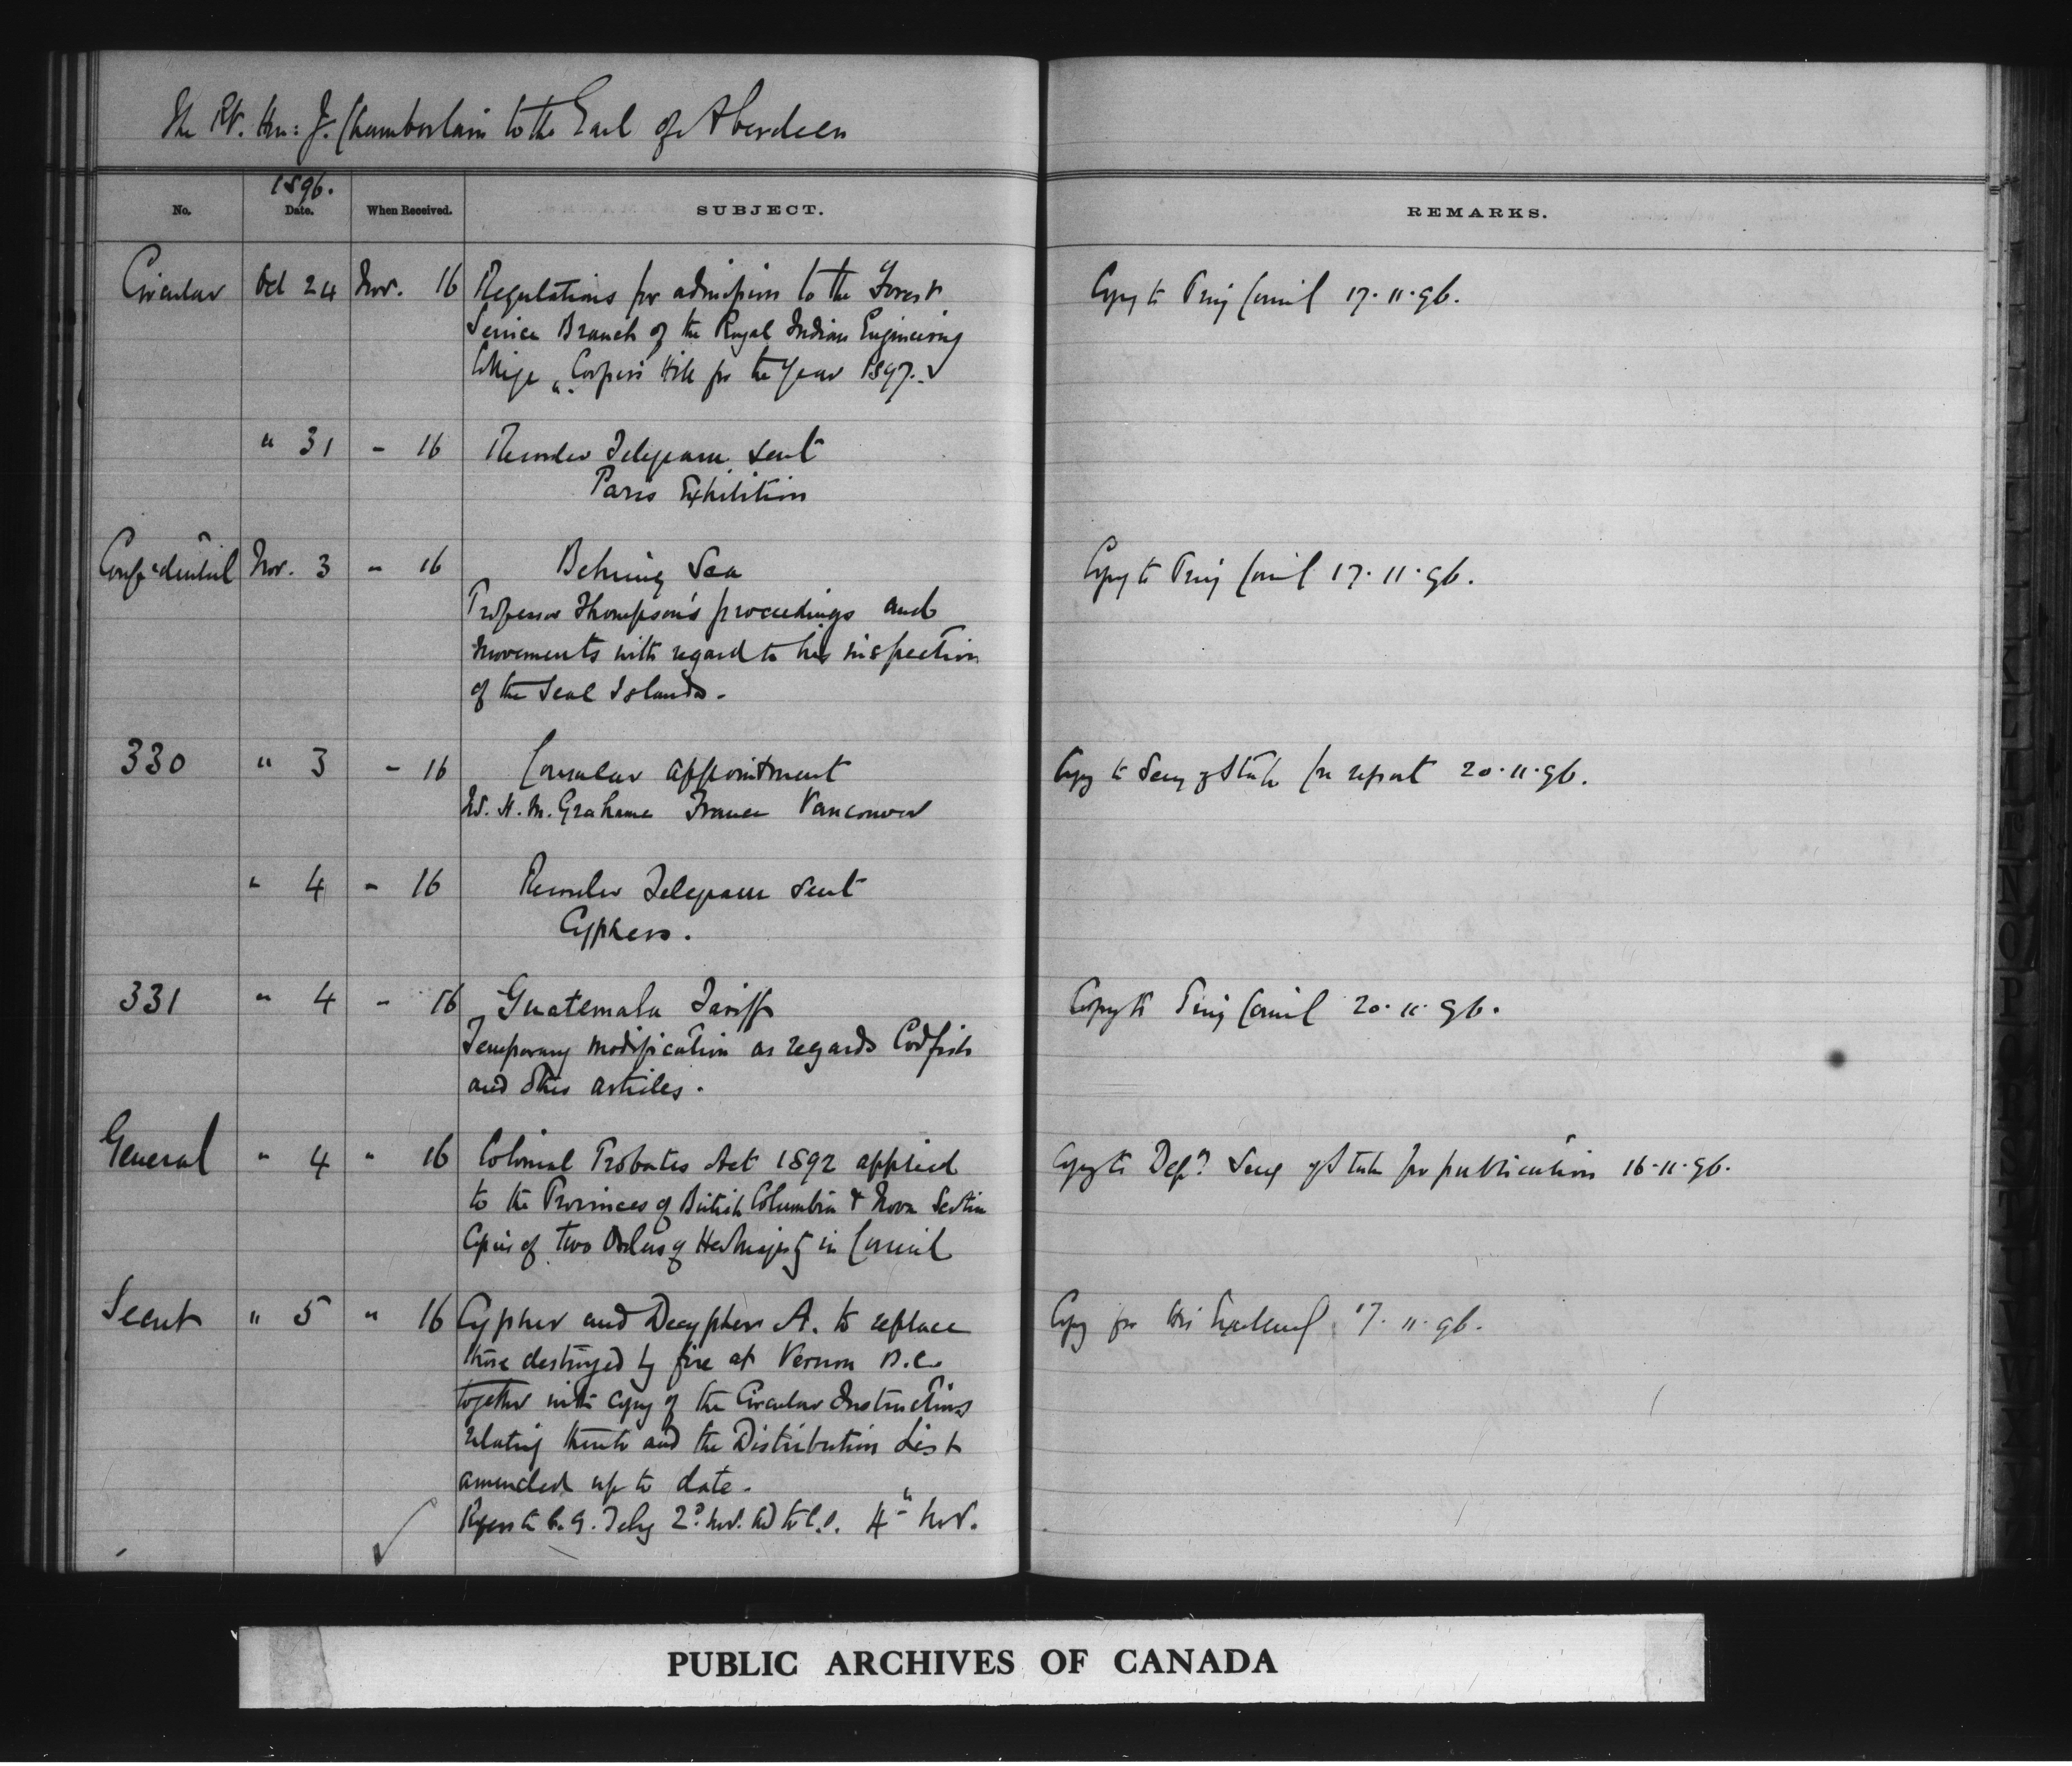 The Rt. Hon: J. Chamberlain to the Earl of Aberdeen
1896.
No. Date. When Received. SUBJECT. REMARKS.
Circular Oct 24 Nov. 16 Regulations for admission to the Forest Copy to Privy Council 17.11.96.
Service Branch of the Royal Indian Engineering
College, Coopers Hill for the Year 1897.
" 31 - 16 Recorder Telegram sent
Paris Exhibition
Confidential Nov. 3 - 16 Behring Sea Copy to Privy Council 17.11.96.
Professor Thompson's proceedings and
movements with regard to his inspection
of the Seal Islands.
330 " 3 - 16 Consular appointment Copy to Secy of State for report 20.11.96.
W. H. M. Grahame France Vancouver
" 4 - 16 Recorder Telegram sent
Cyphers.
331 " 4 - 16 Guatemala Tariff Copy to Privy Council 20.11.96.
Temporary modification as regards Codfish
and other articles.
General " 4 " 16 Colonial Probates Act 1892 applied Copy to Depy Secy of State for publication 16.11.96.
to the Provinces of British Columbia & Nova Scotia
Copies of two Orders of Her Majesty in Council
Secret " 5 " 16 Cypher and Decypher A. to replace Copy for His Excellency 17.11.96.
those destroyed by fire at Vernon B.C.
together with copy of the Circular Instructions
relating thereto and the Distribution List
amended up to date.
2d Nov. 4th Nov.
PUBLIC ARCHIVES OF CANADA